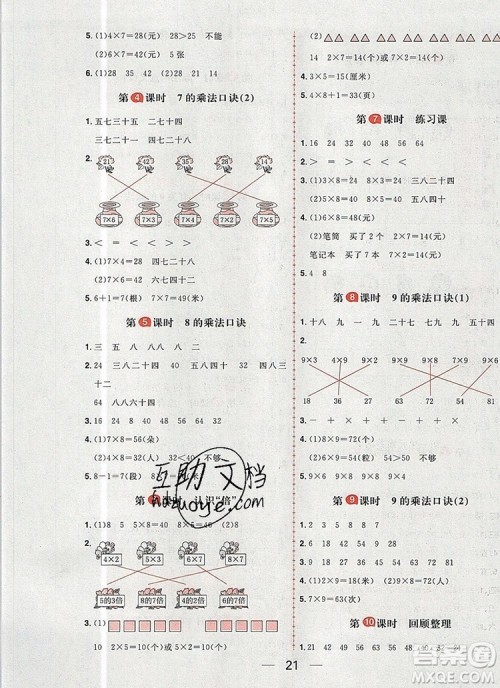 3. (1)4×7=28(元) 28>27 不能
(2)6×7=42(元) 5张
6. (1)28 35 42 (2)21 28
第4课时 7的乘法口诀(2)
1. 五七三十五 二七十四
三七二十一 四七二十八
2. 21 28 42 35 14
7×2 7×3 7×4 7×5 7×6
3. < = < < > <
4. (1)7×4=28 四七二十八
(2)7×6=42 六七四十二
5. 6+1=7(根) 7×7=49(根)
第5课时 8的乘法口诀
1. 三 五 八 八八 二 八
2. 24 三八二十四 40 五八四十 32 四八三十二
64 八八六十四
3. 16 32 8 48 24 56
4. (1)7×8=56(朵)
(2)4×8=32(人) 32<40 不够
5. 8-1=7(段)
课时 认识“倍”
1. (1)8 5 5×8=40 (2)
2. 4×2 5×3 6×2
5的3倍 8的7倍 2的4倍
3. (1)
10 2×5=10(个)
(2)
14 2×7=14(个)或7×2=14(个)
4. 3×5=15(厘米)
5. 4×8+1=33(页)
第7课时 练习课
1. 16 24 48 32 49 64
2. > = < > > <
3. (1)3×8=24 三八二十四
(2)2×7=14 二七十四
4. (1)2×7=14(元)
(2)笔筒 买了2个 买了2个
笔记本 买了7本 买了7本
5. 4 8
第8课时 9的乘法口诀(1)
1. 十八 九 四十五 五 四 九
2. 9×3 4×9 2×9 9×8 7×9 6×9
18 36 27 54 72 63
3. － + ＋ × × ＋
4. (1)9×4=36(个)
(2)9×6=54(瓶) 54<56 不够
第9课时 9的乘法口诀(2)
1. 63 18 36 27 45 54
2. 9 29 38 47 56
3. (1)9×2=18(米)
(2)9×5=45(米)
4. (1)
(2)9×6+5=59(个)
5. 7×9=63(次)
第10课时 回顾整理
21
互助文档
huzuoye.com
答案圈
MXQE.COM